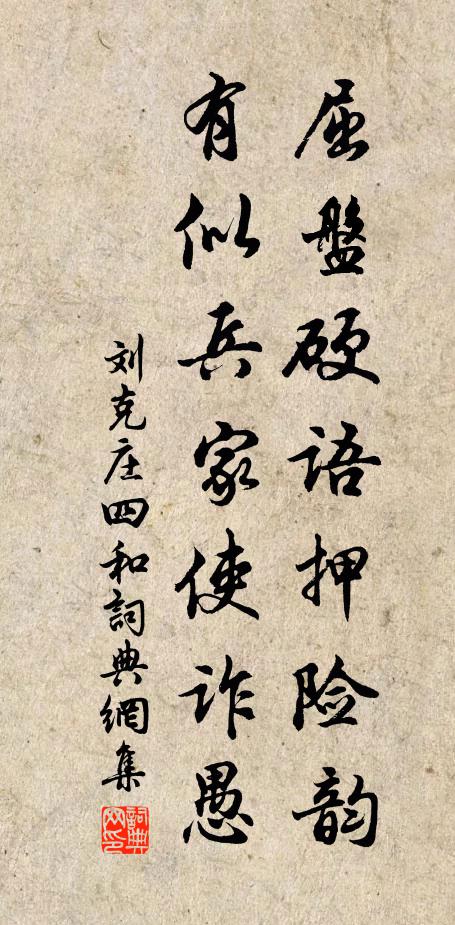 屈盤硬语押险韵
有似兵家使诈愚
刘克庄四和詞典網集
詞典网印